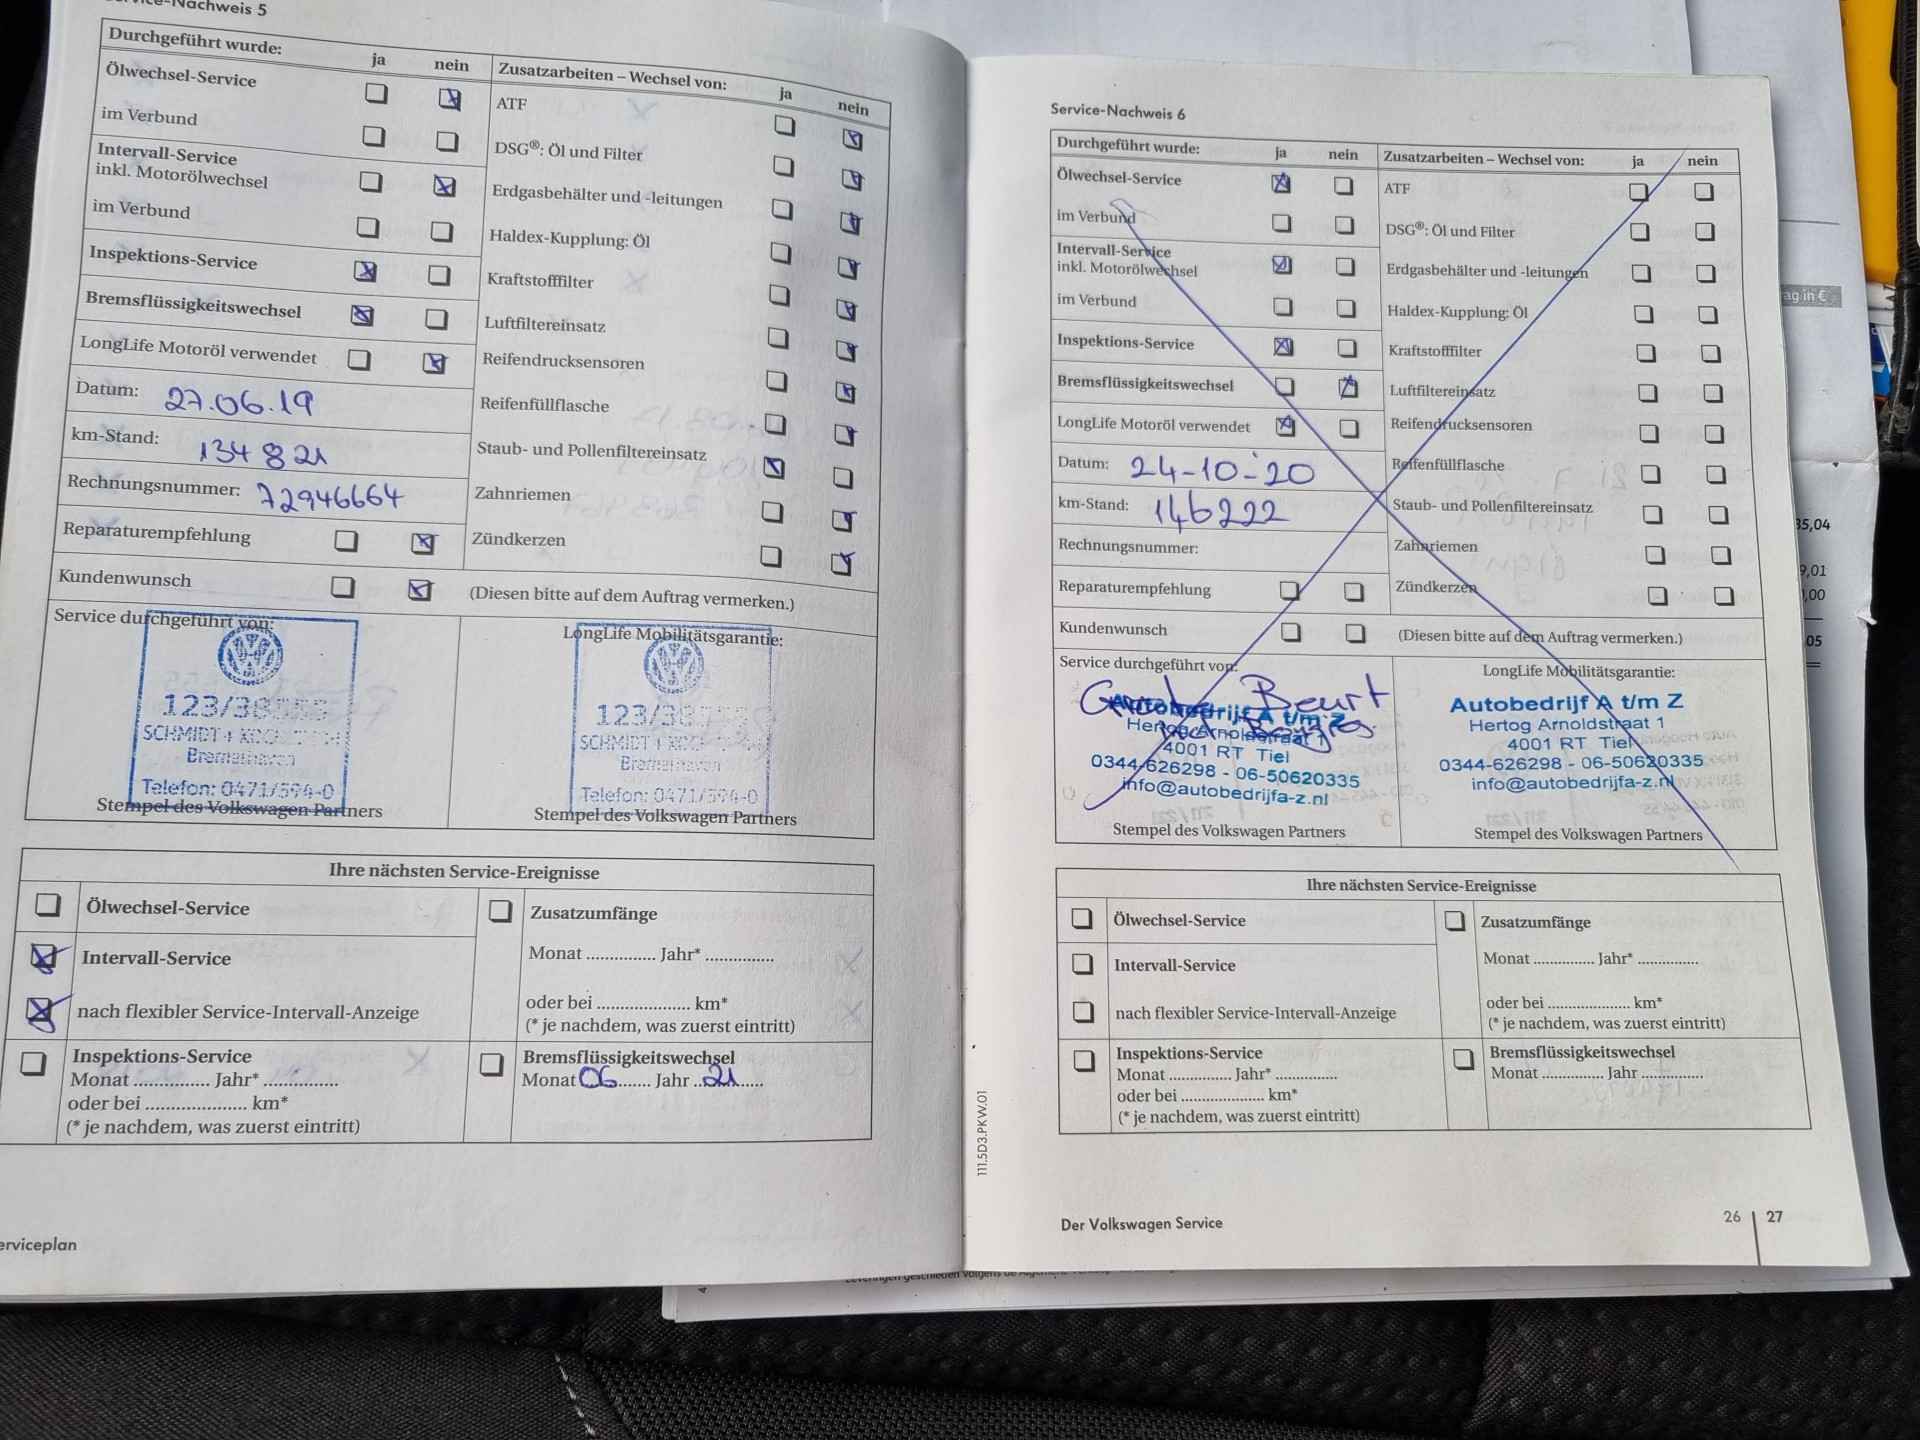 Service-Nachweis 5
Durchgeführt wurde: ja nein
Ölwechsel-Service
im Verbund
Intervall-Service
inkl. Motorölwechsel
im Verbund
Inspektions-Service
Bremsflüssigkeitswechsel
LongLife Motoröl verwendet
Datum: 27.06.19
km-Stand: 134821
Rechnungsnummer: 72946664
Reparaturempfehlung
Kundenwunsch
Zusatzarbeiten – Wechsel von: ja nein
ATF
DSG®: Öl und Filter
Erdgasbehälter und -leitungen
Haldex-Kupplung: Öl
Kraftstofffilter
Luftfiltereinsatz
Reifendrucksensoren
Reifenfüllflasche
Staub- und Pollenfiltereinsatz
Zahnriemen
Zündkerzen
(Diesen bitte auf dem Auftrag vermerken.)
Service durchgeführt von:
123/38
SCHMIDT + KOCH
Bremerhaven
Telefon: 0471/594-0
Stempel des Volkswagen Partners
LongLife Mobilitätsgarantie:
123/38
SCHMIDT + KOCH
Bremerhaven
Telefon: 0471/594-0
Stempel des Volkswagen Partners
Ihre nächsten Service-Ereignisse
Ölwechsel-Service
Intervall-Service
nach flexibler Service-Intervall-Anzeige
Inspektions-Service
Monat ............. Jahr* .............
oder bei ..................... km*
(* je nachdem, was zuerst eintritt)
Zusatzumfänge
Monat ............ Jahr* ............
oder bei ..................... km*
(* je nachdem, was zuerst eintritt)
Bremsflüssigkeitswechsel
Monat 06 ...... Jahr 21 ......
erviceplan
Service-Nachweis 6
Durchgeführt wurde: ja nein
Ölwechsel-Service
im Verbund
Intervall-Service
inkl. Motorölwechsel
im Verbund
Inspektions-Service
Bremsflüssigkeitswechsel
LongLife Motoröl verwendet
Datum: 24-10-'20
km-Stand: 146222
Rechnungsnummer:
Reparaturempfehlung
Kundenwunsch
Zusatzarbeiten – Wechsel von: ja nein
ATF
DSG®: Öl und Filter
Erdgasbehälter und -leitungen
Haldex-Kupplung: Öl
Kraftstofffilter
Luftfiltereinsatz
Reifendrucksensoren
Reifenfüllflasche
Staub- und Pollenfiltereinsatz
Zahnriemen
Zündkerzen
(Diesen bitte auf dem Auftrag vermerken.)
Service durchgeführt von:
Beurt
Autobedrijf A t/m Z
Hertog Arnoldstraat 1
4001 RT Tiel
0344-626298 - 06-50620335
info@autobedrijfa-z.nl
Stempel des Volkswagen Partners
LongLife Mobilitätsgarantie:
Autobedrijf A t/m Z
Hertog Arnoldstraat 1
4001 RT Tiel
0344-626298 - 06-50620335
info@autobedrijfa-z.nl
Stempel des Volkswagen Partners
Ihre nächsten Service-Ereignisse
Ölwechsel-Service
Intervall-Service
nach flexibler Service-Intervall-Anzeige
Inspektions-Service
Monat ............. Jahr* .............
oder bei ..................... km*
(* je nachdem, was zuerst eintritt)
Zusatzumfänge
Monat ............ Jahr* ............
oder bei ..................... km*
(* je nachdem, was zuerst eintritt)
Bremsflüssigkeitswechsel
Monat ............ Jahr ............
111.5D3.PKW.01
Der Volkswagen Service
26 27
ag in €
35,04
9,01
,00
,05